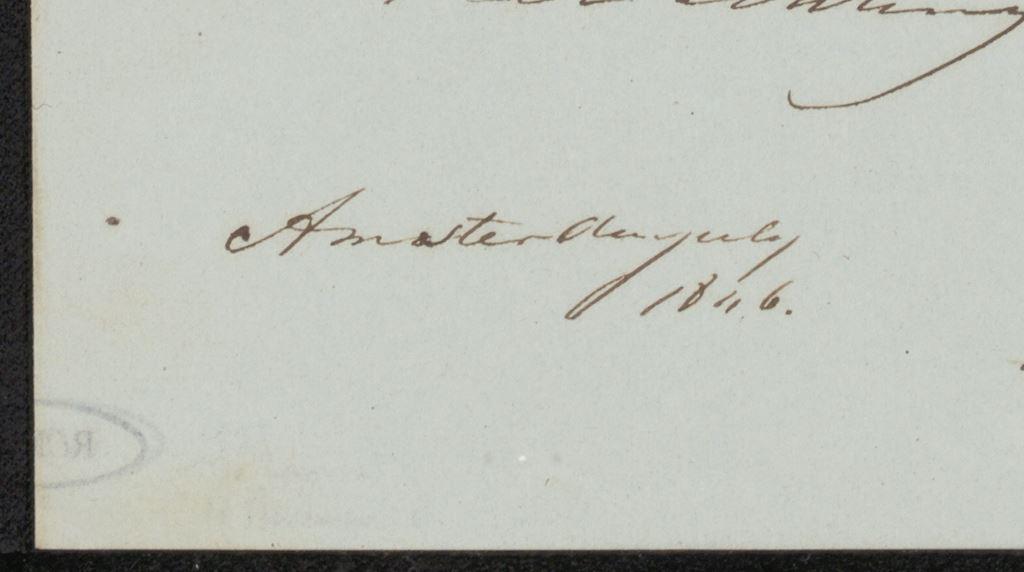 Amsterdam july
1846.